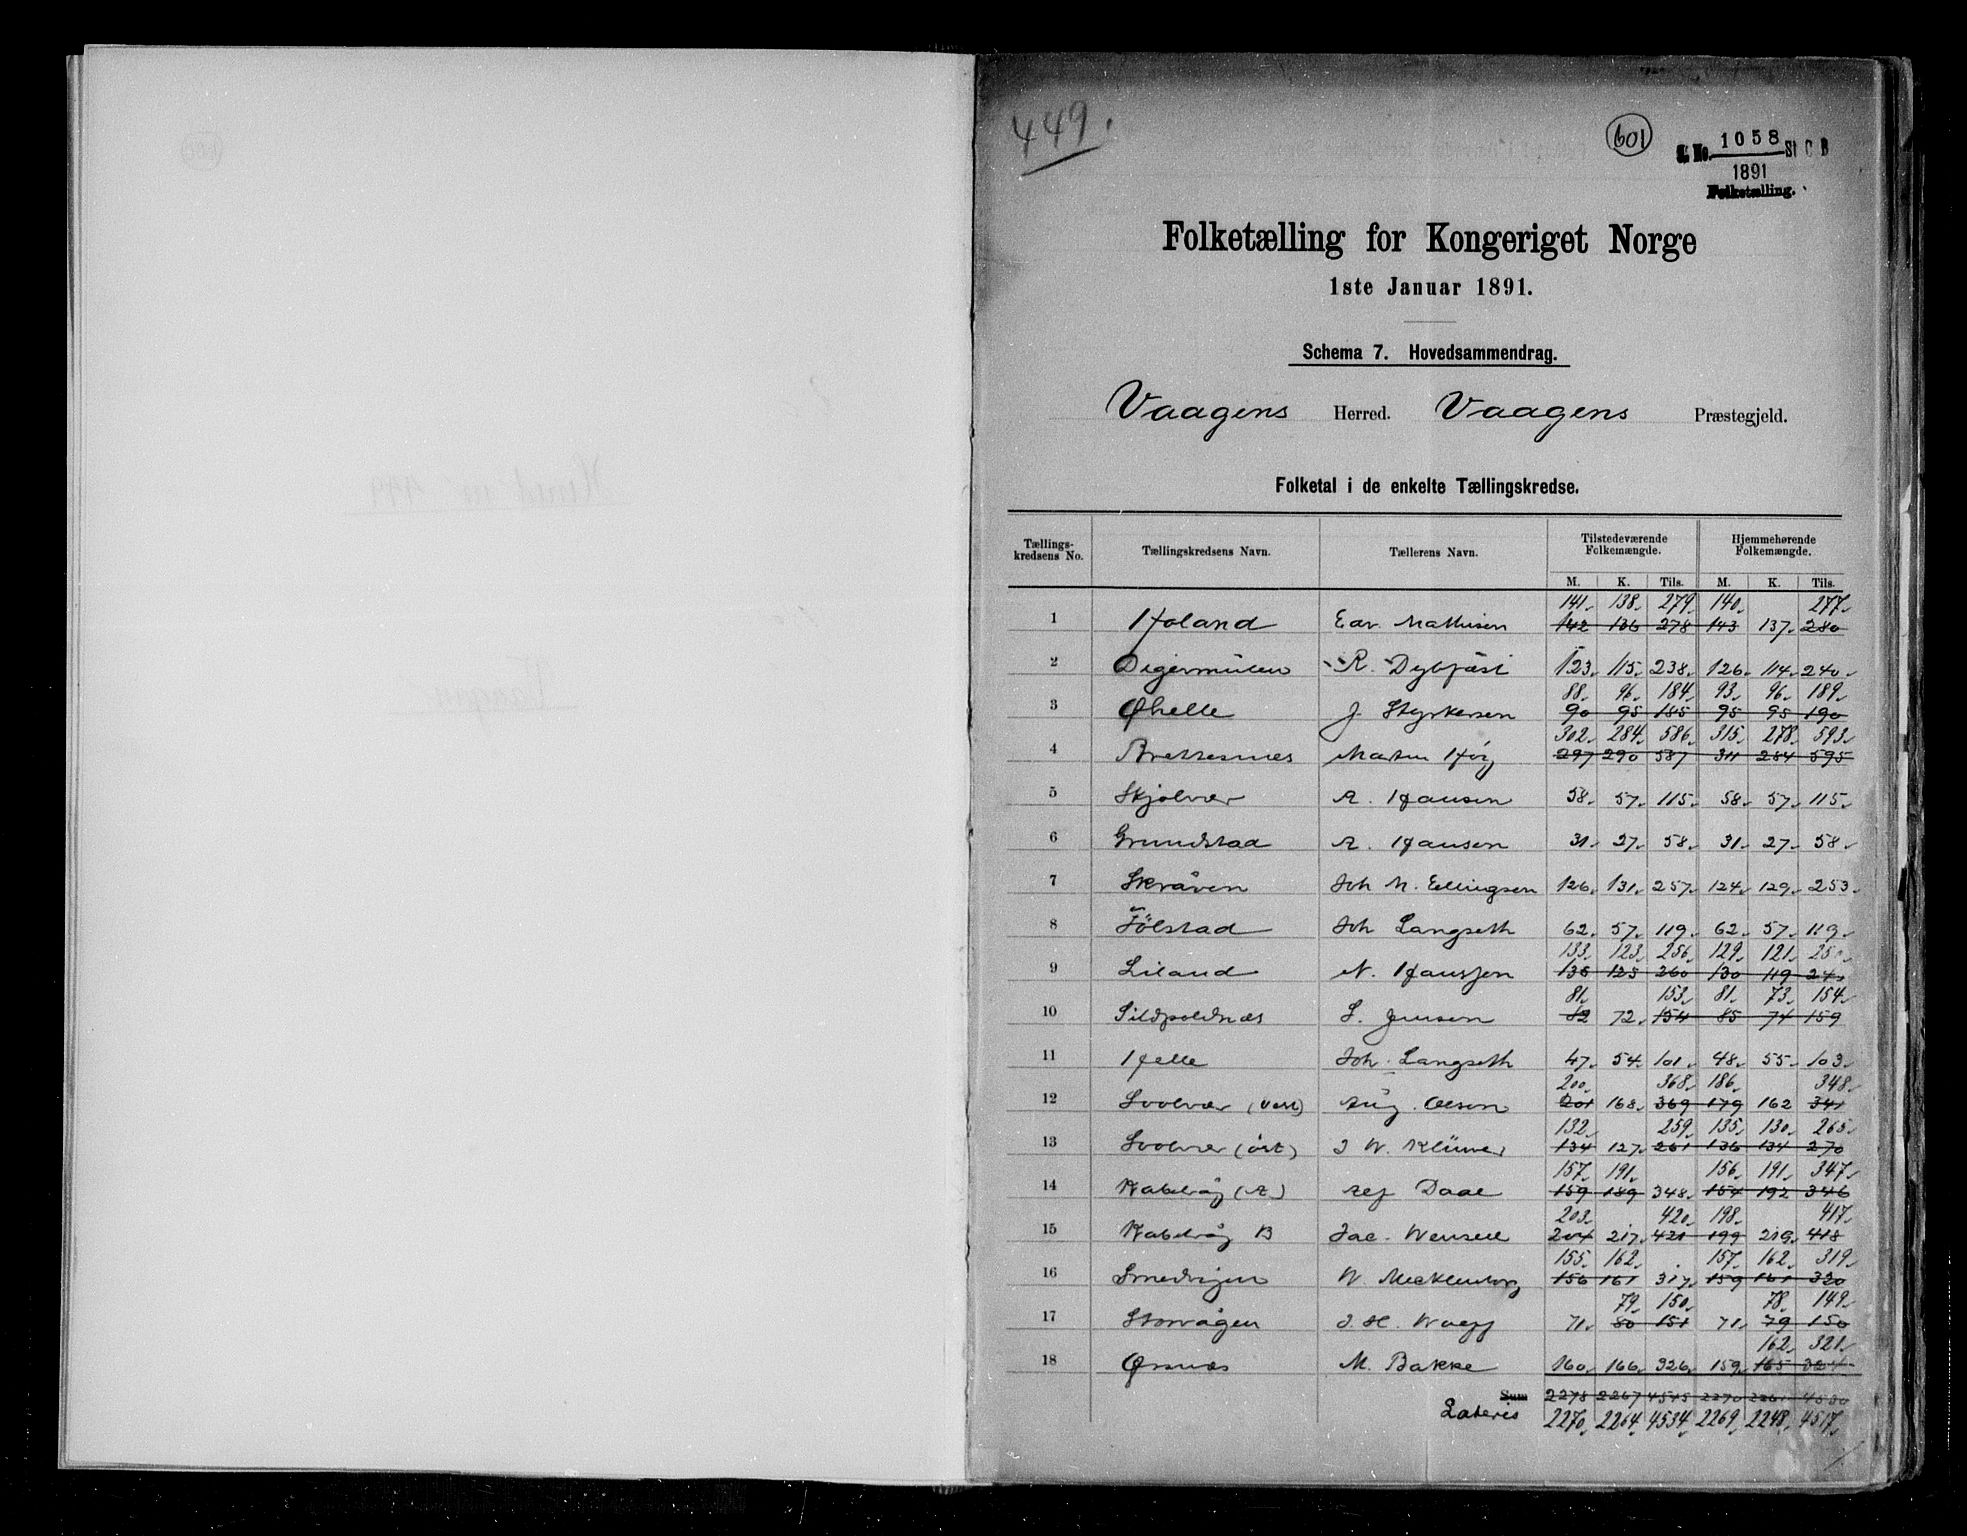 449.
601
S. No. 1058 St C B
1891
Folketælling.
Folketælling for Kongeriget Norge
1ste Januar 1891.
Schema 7. Hovedsammendrag.
Vaagens Herred. Vaagens Præstegjeld.
Folketal i de enkelte Tællingskredse.
Tællings-kredsens No. Tællingskredsens Navn. Tællerens Navn. Tilstedeværende Folkemængde. Hjemmehørende Folkemængde.
M. K. Tils. M. K. Tils.
141 138 279 140 277
1 Holand Edv. Mathisen 142 136 278 143 137 280
2 Digermulen R. Dybfæst 123 115 238 126 114 240
88 96 184 93 96 189
3 Øhelle J. Styrkersen 90 95 185 95 95 190
302 284 586 315 278 593
4 Brettesnes Martin Høg 297 290 587 311 284 595
5 Skjolvær A. Hansen 58 57 115 58 57 115
6 Grundstad A. Hansen 31 27 58 31 27 58
7 Skråven Joh M. Ellingsen 126 131 257 124 129 253
8 Fölstad Joh Langseth 62 57 119 62 57 119
133 123 256 129 121 250
9 Liland N. Hanssen 135 125 260 130 119 249
81 153 81 73 154
10 Sildpoldnæs L. Jensen 82 72 154 85 74 159
11 Helle Joh. Langseth 47 54 101 48 55 103
200 368 186 348
12 Svolvær (vest) Aug. Olsen 201 168 369 179 162 341
132 259 135 130 265
13 Svolvær (öst) J W. Klüwer 134 127 261 136 134 270
157 191 156 191 347
14 Kabelvåg (A) Daae 159 189 348 154 192 346
203 420 198 417
15 Kabelvåg B Jac. 204 217 421 199 219 418
155 162 157 162 319
16 Smedvigen W Mecklenborg 156 161 317 159 161 320
79 150 78 149
17 Storvågen 71 80 151 71 79 150
162 321
18 Ørsnæs M. Bakke 160 166 326 159 165 324
Sum 2278 2267 4545 2270 2261
Lateris 2270 2264 4534 2269 2248 4517